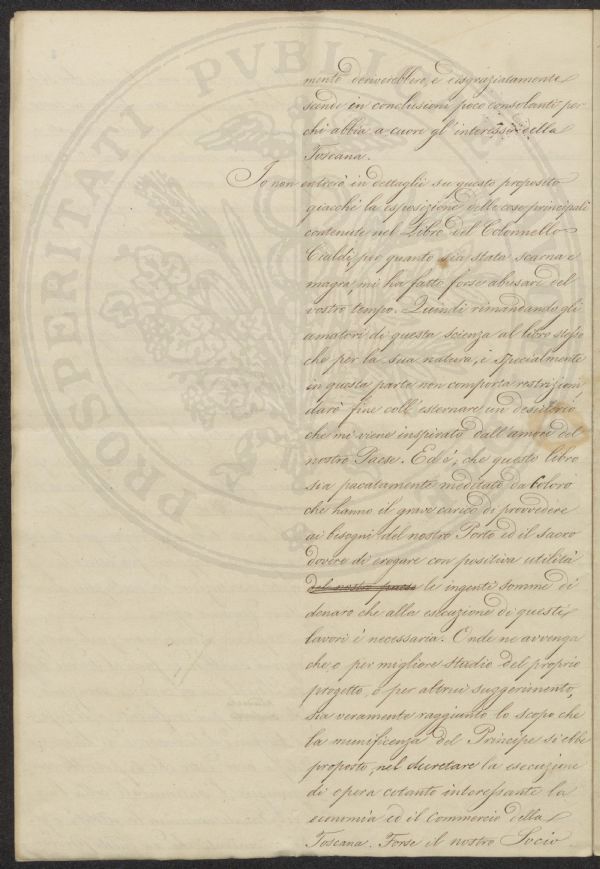 mento deriverebbero, e disgraziatamente
scende in conclusioni poco consolanti per
chi abbia a cuore gl'interessi della
Toscana.
Io non entrerò in dettagli su questo proposito
giacchè la esposizione delle cose principali
contenute nel Libro del Colonnello
Cialdi, per quanto sia stata scarna e
magra, mi ha fatto forse abusare del
vostro tempo. Quindi rimandando gli
amatori di questa scienza al libro stesso
che per la sua natura, e specialmente
in questa parte non comporta restrizioni
darò fine coll'esternare un desiderio
che mi viene inspirato dall'amore del
nostro Paese. Ed è, che questo libro
sia pacatamente meditato da Coloro
che hanno il grave carico di provvedere
ai bisogni del nostro Porto ed il sacro
dovere di erogare con positiva utilità
del nostro paese le ingenti somme di
denaro che alla esecuzione di questi
lavori è necessaria. Onde ne avvenga
che o per migliore studio del proprio
progetto, o per altrui suggerimento,
sia veramente raggiunto lo scopo che
la munificenza del Principe si ebbe
proposto, nel decretare la esecuzione
di opera cotanto interessante la
economia ed il Commercio della
Toscana. Forse il nostro Socio
PROSPERITATI PVBLI